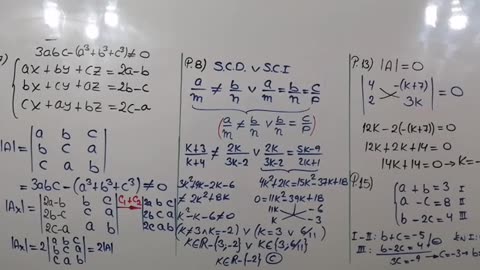 3abc-(a³+b³+c³)≠0
ax+by+cz=2a-b
bx+cy+az=2b-c
cx+ay+bz=2c-a
|A|= | a b c |
| b c a |
| c a b |
=3abc-(a³+b³+c³)≠0
|Ax|= | 2a-b b c | C₁+C₂ | 2a b c |
| 2b-c c a | | 2b c a |
| 2c-a a b | | 2c a b |
|Ax|=2 | a b c | =2|A|
| b c a |
| c a b |
P.8) S.C.D. ∨ S.C.I
a/m ≠ b/n ∨ a/m = b/n = c/p
(a/m ≠ b/n ∨ b/n = c/p)
k+3/k+4 ≠ 2k/3k-2 ∨ 2k/3k-2 = 5k-9/2k+1
3k²+7k-2k-6 4k²+2k=15k²-37k+18
≠2k²+8k 0=11k²-39k+18
k²-k-6≠0 11k -6
k -3
(k≠3∧k≠-2) ∨ (k=3 ∨ 6/11)
k∈ℝ-{3,-2} ∨ k∈{3,6/11}
k∈ℝ-{-2} C
P.13) |A|=0
| 4 -(k+7) | =0
| 2 3k |
12k-2(-(k+7))=0
12k+2k+14=0
14k+14=0→k=-
P.15)
a+b=3 I
a-c=8 II
b-2c=4 III
I-II: b+c=-5
III: b-2c=4
3c=-9 →c=-3→